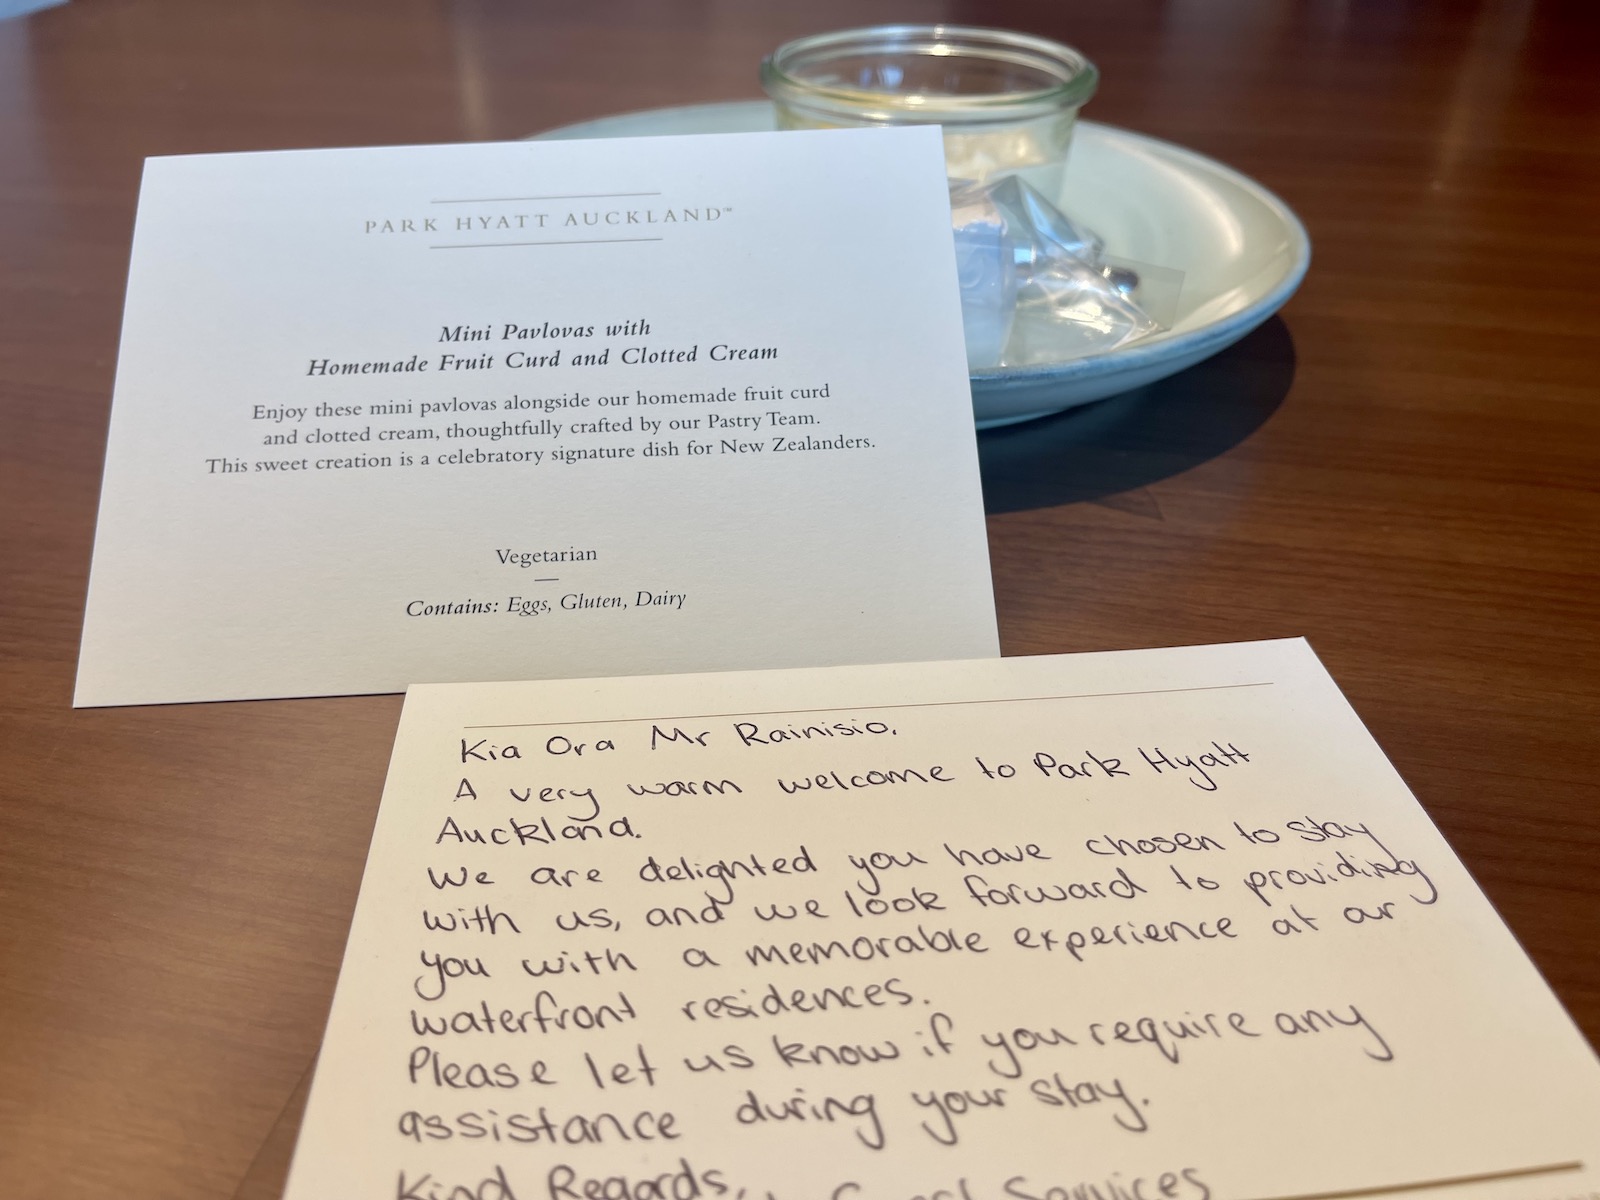 PARK HYATT AUCKLAND™
Mini Pavlovas with
Homemade Fruit Curd and Clotted Cream
Enjoy these mini pavlovas alongside our homemade fruit curd
and clotted cream, thoughtfully crafted by our Pastry Team.
This sweet creation is a celebratory signature dish for New Zealanders.
Vegetarian
Contains: Eggs, Gluten, Dairy
Kia Ora Mr Rainisio,
A very warm welcome to Park Hyatt
Auckland.
We are delighted you have chosen to stay
with us, and we look forward to providing
you with a memorable experience at our
waterfront residences.
Please let us know if you require any
assistance during your stay.
Kind Regards, Services